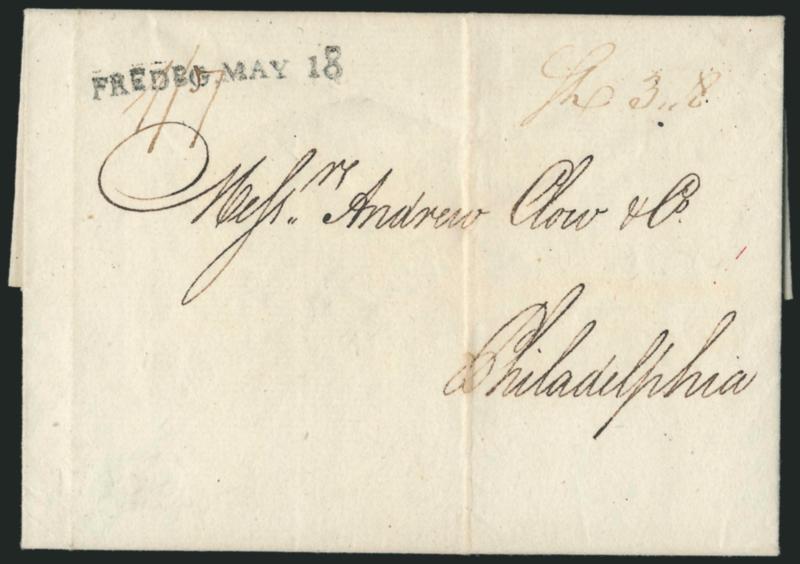 FREDBG. MAY 18
Sh 3.. 8
Mess.rs Andrew Clow & Co.
Philadelphia